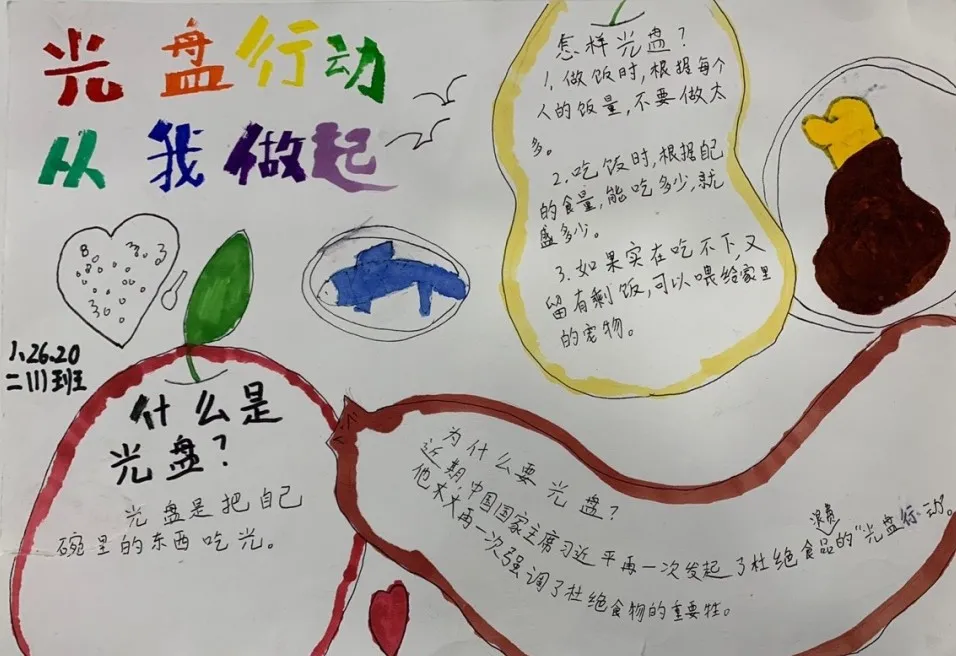 光盘行动
从我做起
怎样光盘？
1、做饭时，根据每个
人的饭量，不要做太
多。
2、吃饭时，根据自己
的食量，能吃多少，就
盛多少。
3、如果实在吃不下，又
留有剩饭，可以喂给家里
的宠物。
1、26.20
二(1)班
什么是
光盘？
光盘是把自己
碗里的东西吃光。
为什么要光盘？
近期，中国国家主席习近平再一次发起了杜绝浪费食品的“光盘行动”。
他大大再一次强调了杜绝食物的重要性。